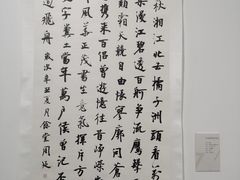 秋湘江北去橘子洲頭看萬
染漫江碧透百舸爭流鷹擊
類霜天競自由悵寥廓問蒼
攜來百侶曾遊憶往昔崢嶸
風華正茂書生意氣揮斥方
文字糞土當年萬戶侯曾記否
遏飛舟 歲次辛丑夏月